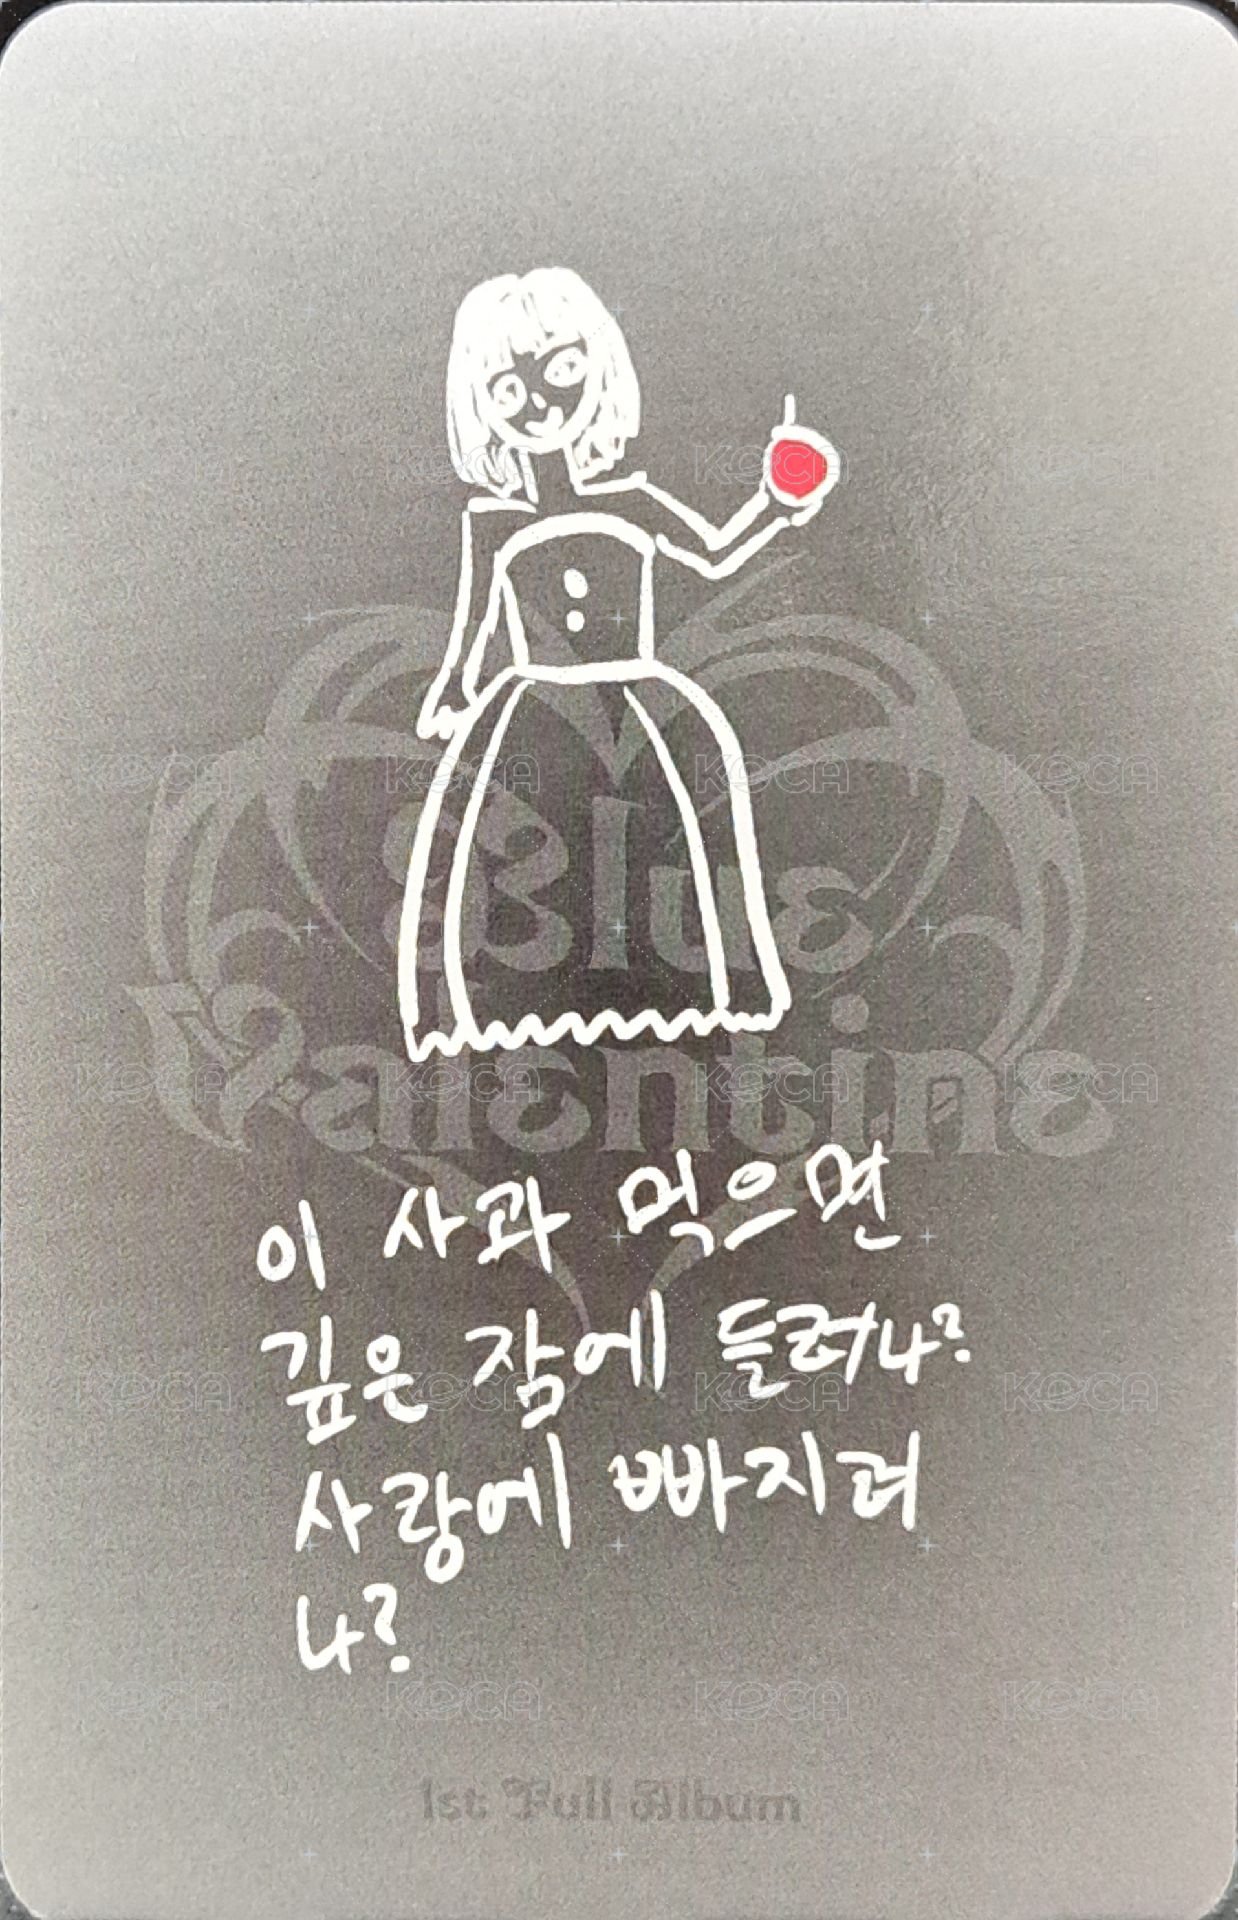 Blue
Valentine
이 사과 먹으면
깊은 잠에 들려나?
사랑에 빠지려
나?
1st Full Album
KOCA